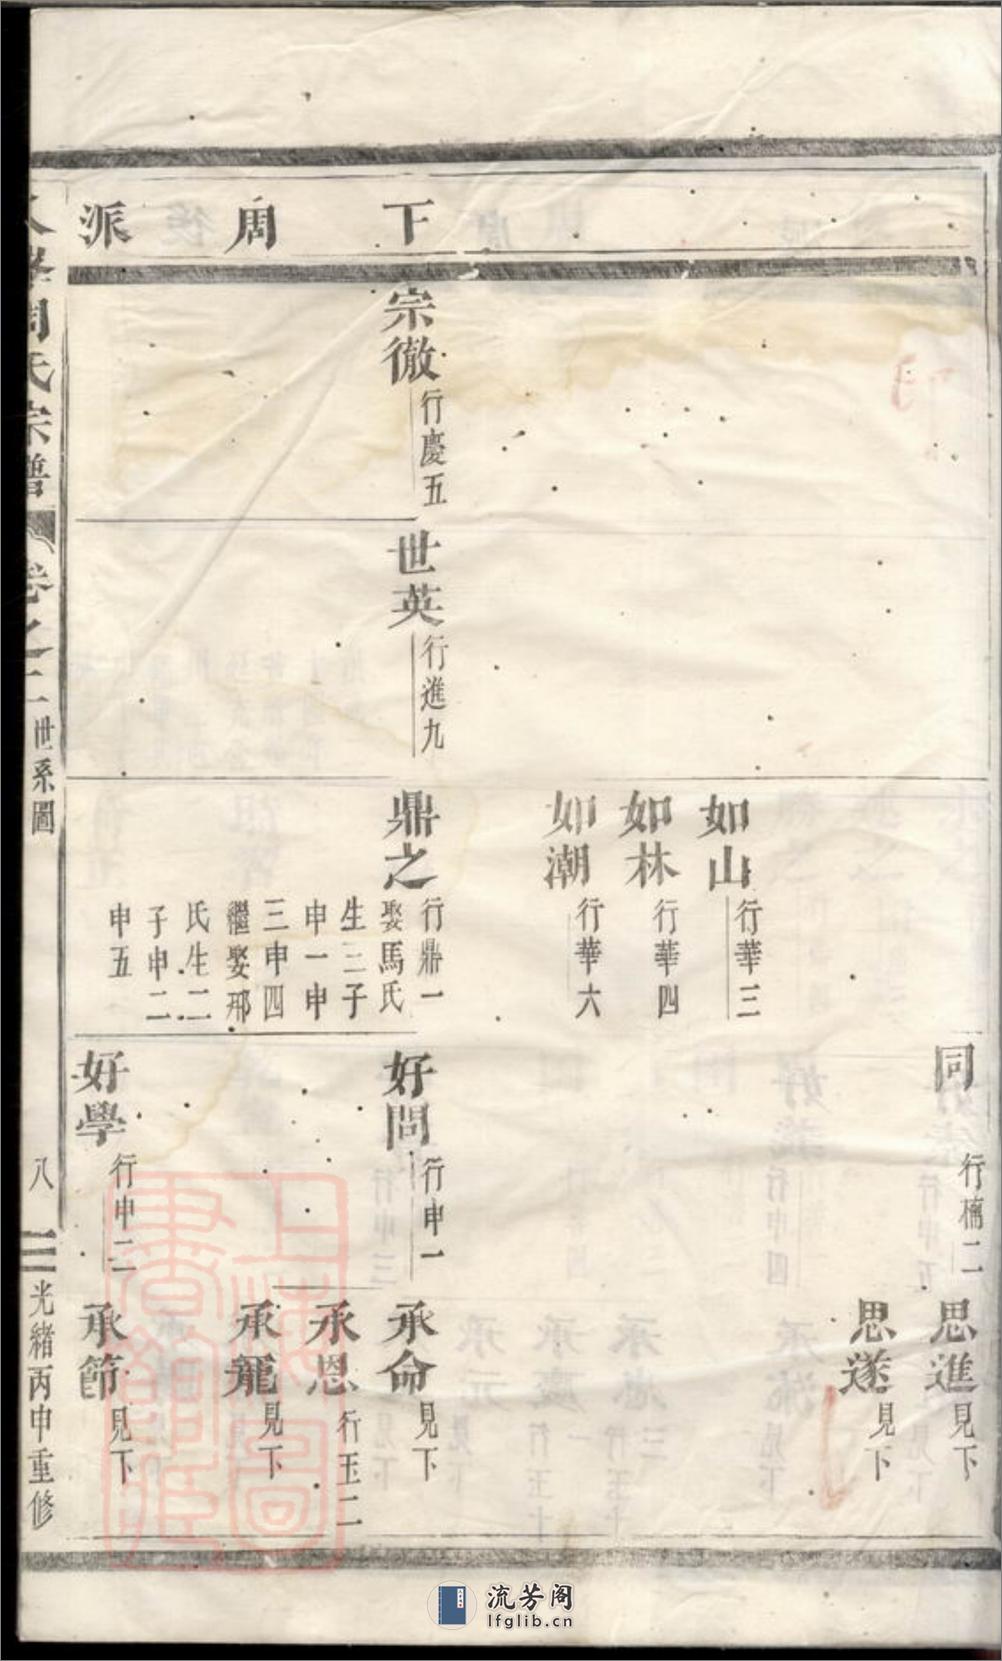 下周派
宗徹
行慶五
世英
行進九
如山
行華三
如林
行華四
如潮
行華六
鼎之
行鼎一
娶馬氏
生三子
申一申
三申四
繼娶邢
氏生二
子申二
申五
同
行楠二
好問
行申一
好學
行申二
思進
見下
思遂
見下
承命
見下
承恩
行玉二
承寵
見下
承節
見下
周氏宗譜
卷之二
世系圖
八
光緒丙申重修
上海圖書館藏
流芳阁
lfglib.cn